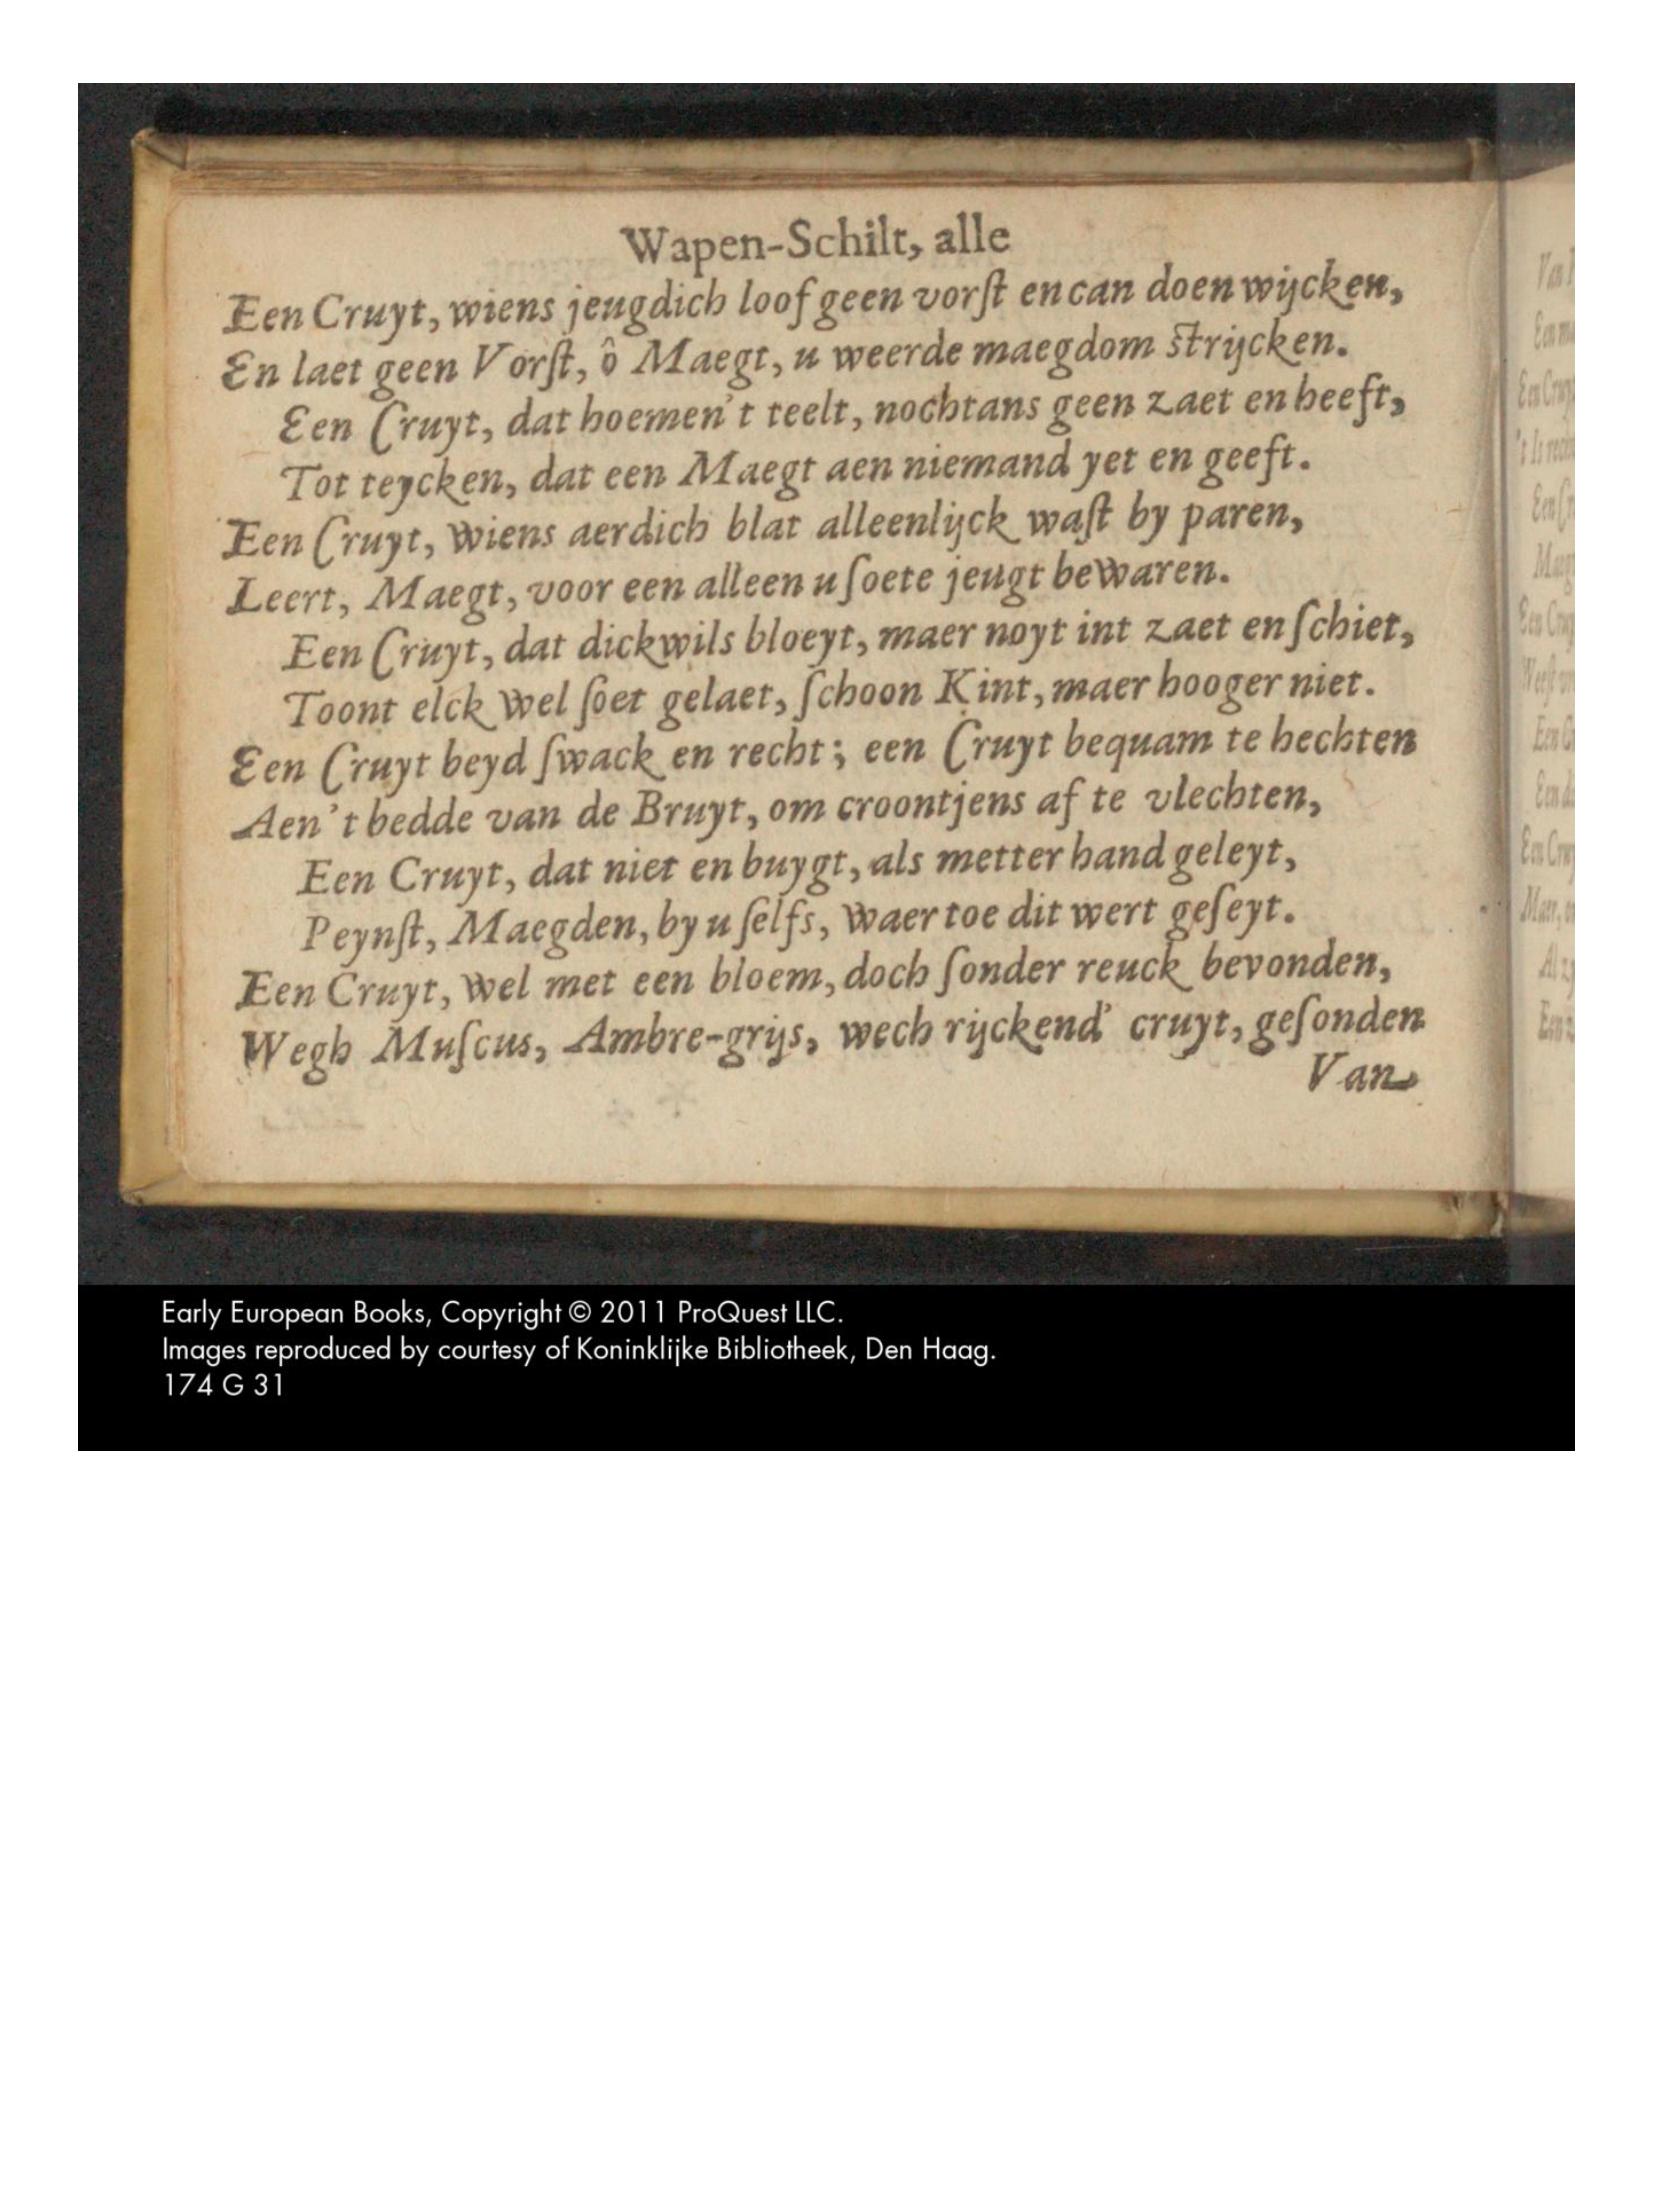 Wapen-Schilt, alle
Een Cruyt, wiens jeugdich loof geen vorſt en can doen wijcken,
En laet geen Vorſt, ô Maegt, u weerde maegdom ſtrijcken.
Een Cruyt, dat hoemen't teelt, nochtans geen zaet en heeft,
Tot teycken, dat een Maegt aen niemand yet en geeft.
Een Cruyt, wiens aerdich blat alleenlijck waſt by paren,
Leert, Maegt, voor een alleen u ſoete jeugt bewaren.
Een Cruyt, dat dickwils bloeyt, maer noyt int zaet en ſchiet,
Toont elck wel ſoet gelaet, ſchoon Kint, maer hooger niet.
Een Cruyt beyd ſwack en recht; een Cruyt bequam te hechten
Aen't bedde van de Bruyt, om croontjens af te vlechten,
Een Cruyt, dat niet en buygt, als metter hand geleyt,
Peynſt, Maegden, by u ſelfs, waer toe dit wert geſeyt.
Een Cruyt, wel met een bloem, doch ſonder reuck bevonden,
Wegh Muſcus, Ambre-grijs, wech rijckend' cruyt, geſonden
Van
Early European Books, Copyright © 2011 ProQuest LLC.
Images reproduced by courtesy of Koninklijke Bibliotheek, Den Haag.
174 G 31